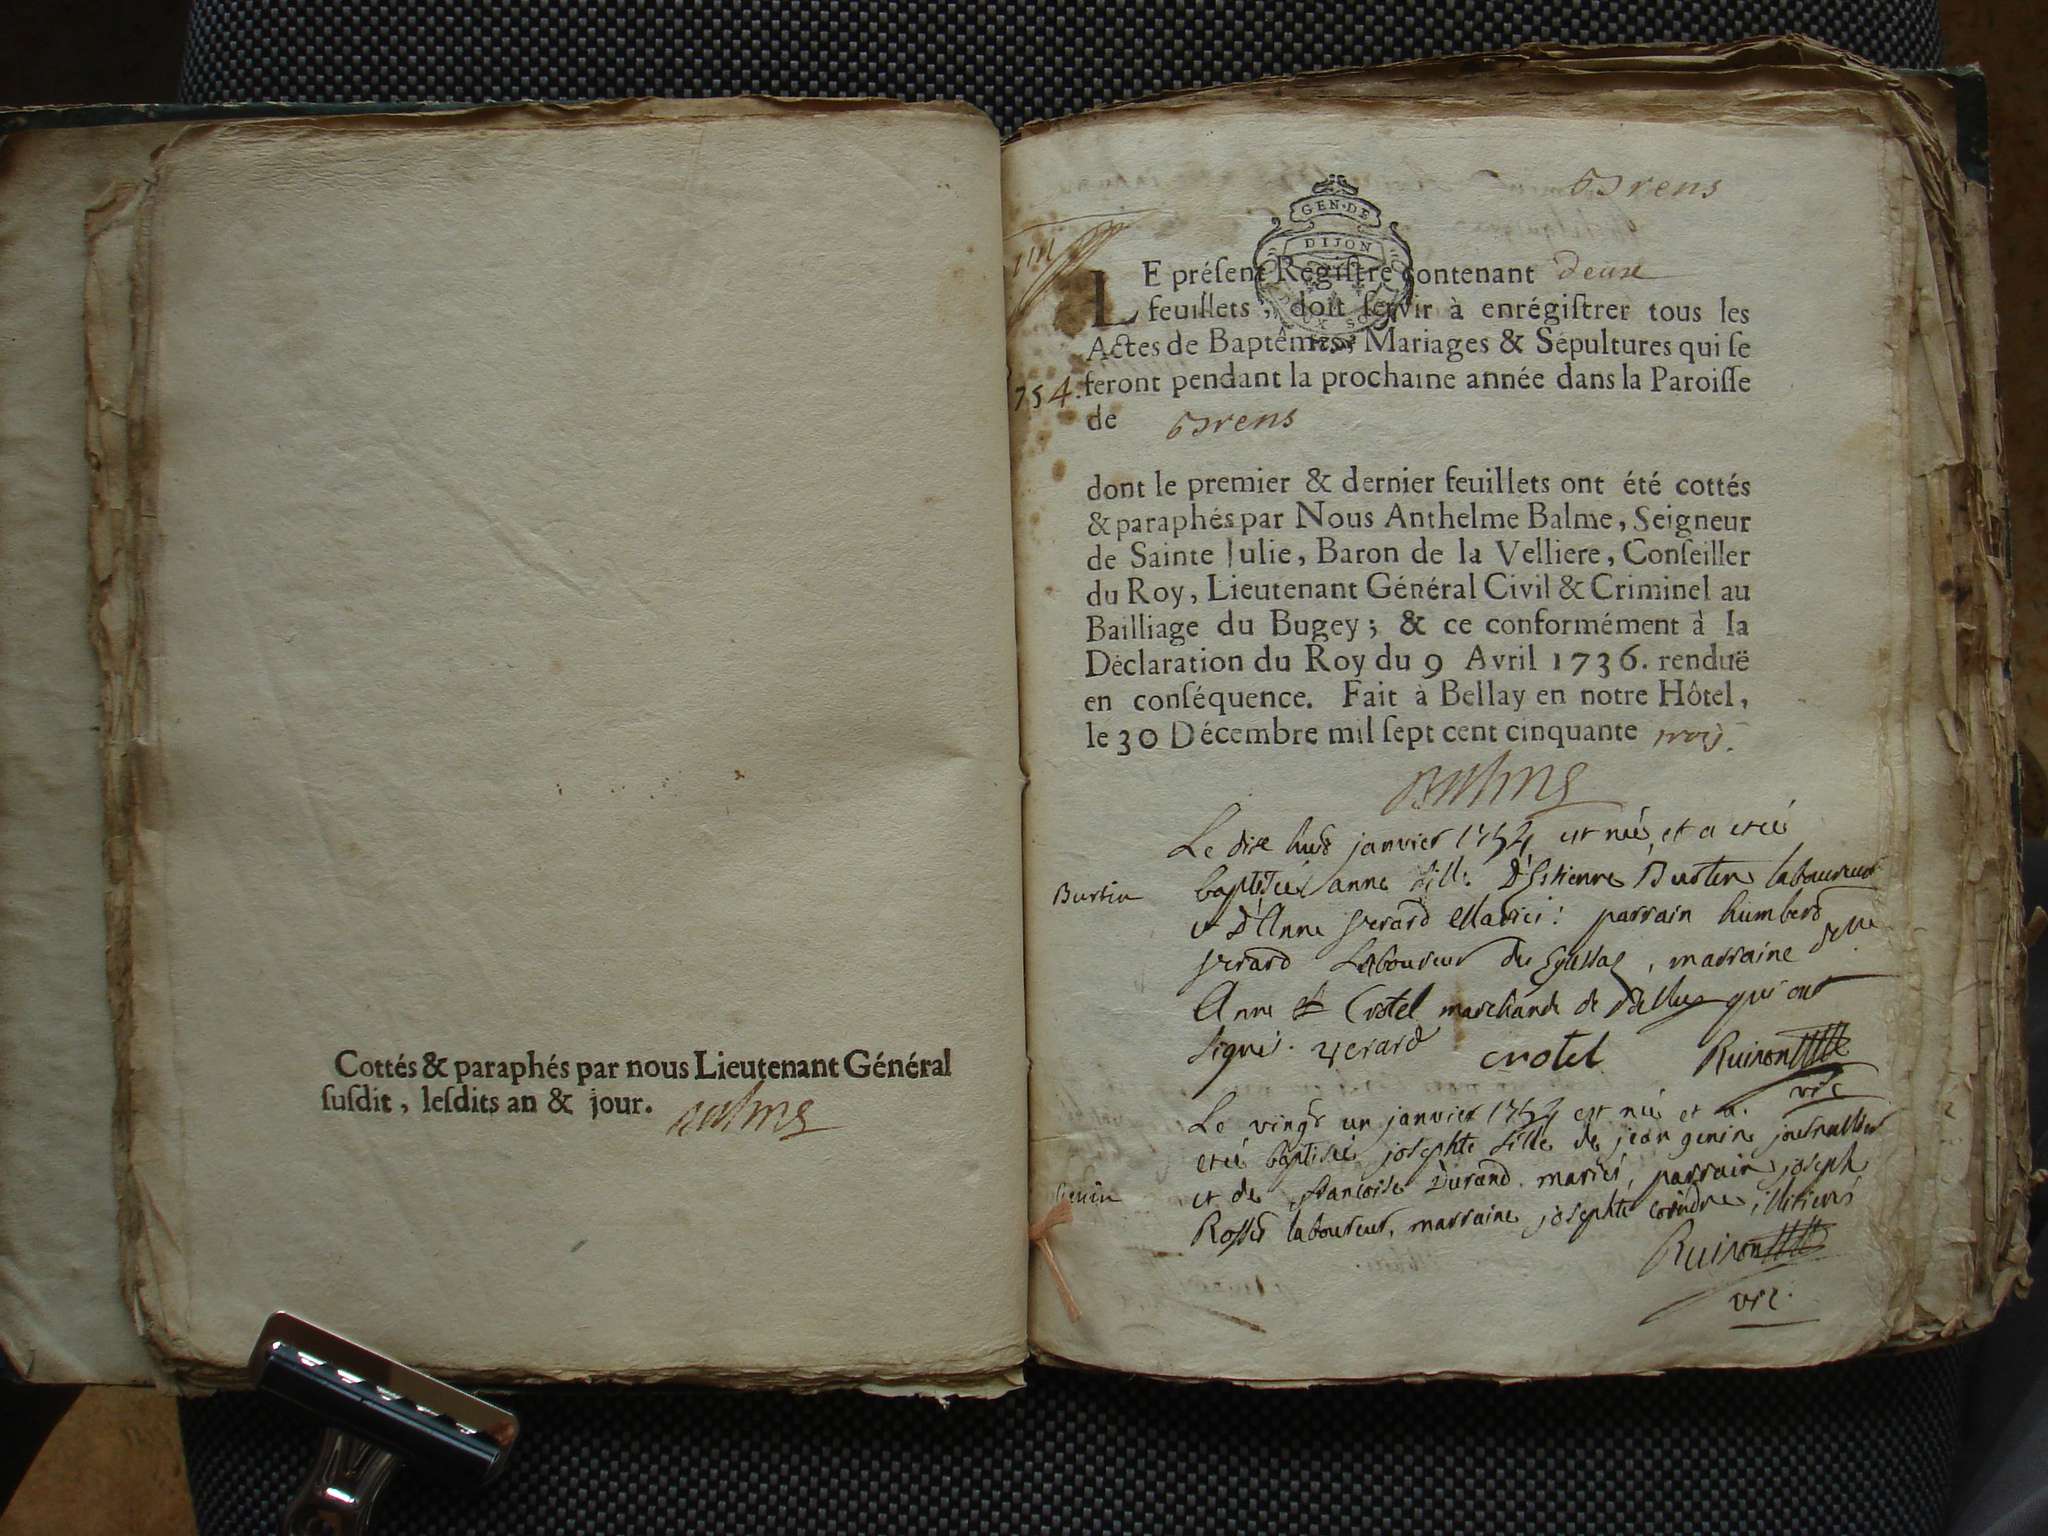 Cottés & paraphés par nous Lieutenant Général
susdit, lesdits an & jour. Balme
Brens
GEN·DE
DIJON
LE présent Registre contenant deux
feuillets, doit servir à enrégistrer tous les
Actes de Baptêmes, Mariages & Sépultures qui se
feront pendant la prochaine année dans la Paroisse
754.
de Brens
dont le premier & dernier feuillets ont été cottés
& paraphés par Nous Anthelme Balme, Seigneur
de Sainte Julie, Baron de la Velliere, Conseiller
du Roy, Lieutenant Général Civil & Criminel au
Bailliage du Bugey; & ce conformément à la
Déclaration du Roy du 9 Avril 1736. renduë
en conséquence. Fait à Bellay en notre Hôtel,
le 30 Décembre mil sept cent cinquante trois.
Balme
Le dixe huit janvier 1754 est née, et a etée
Burtin
baptisée anne fille D'Estienne Burtin laboureur
et D'Anne Gerard Mariés: parrain humbert
gerard Laboureur de, marraine delle
Anne Crotel marchande de qui ont
signés. gerard crotel Ruiron
vic
Le vingt un janvier 1754 est née et a
etée baptisée josephte fille de jean genin journallier
genin
et de françoise Durand mariés, parrain joseph
Rosset laboureur, marraine josephte, illiterés
Ruiron
vic.